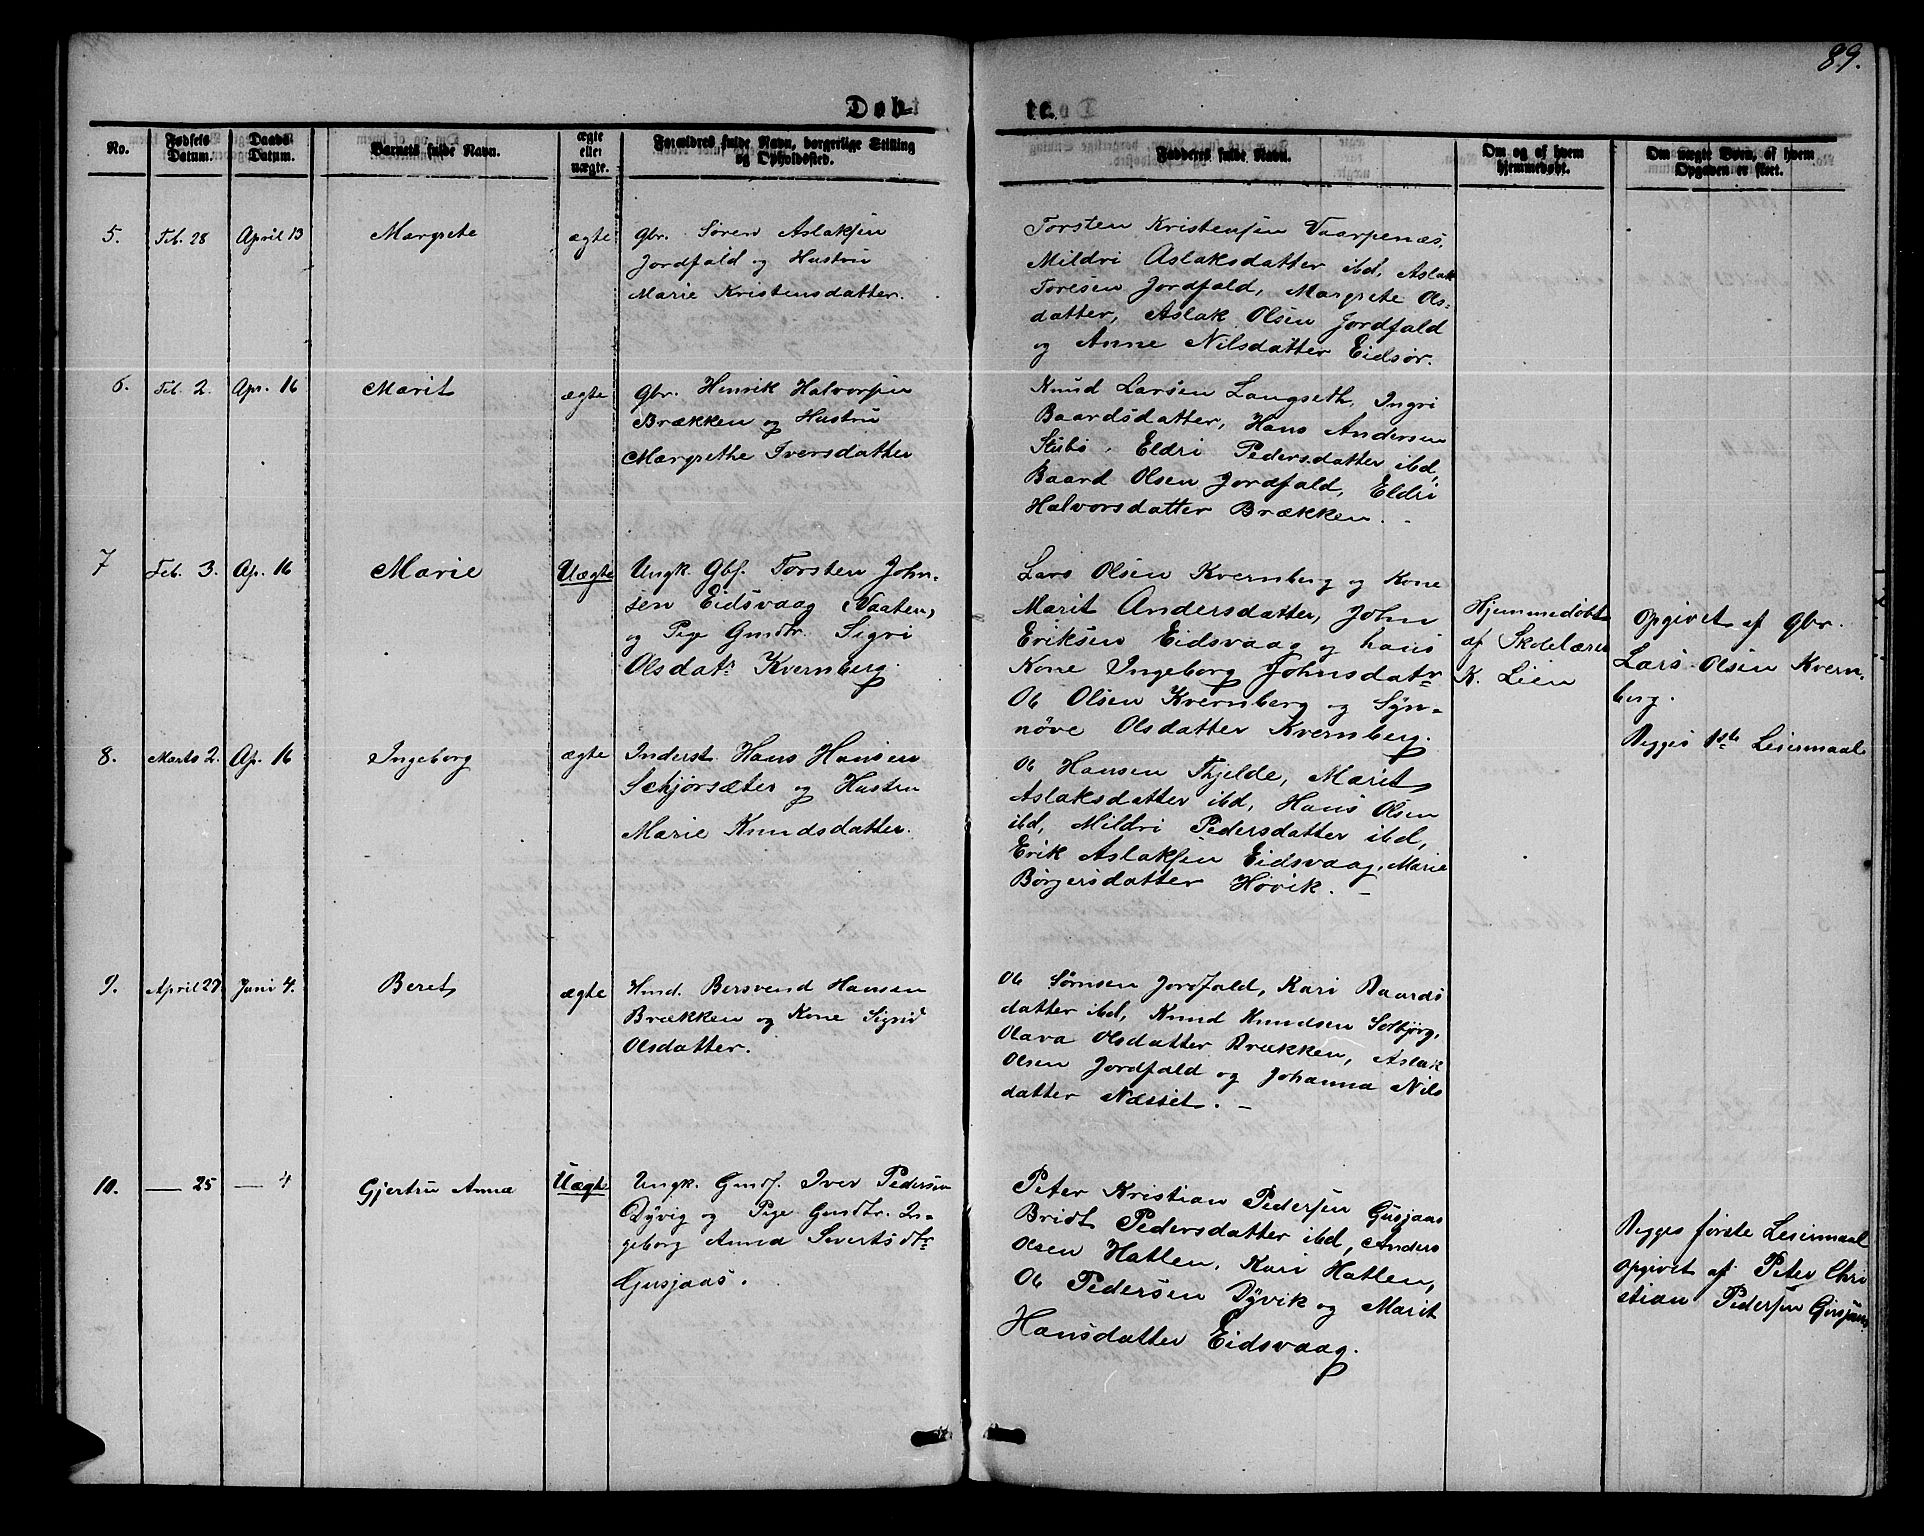 89.
Døbte.
No.
Fødsels Datum.
Daabs Datum.
Barnets fulde Navn.
ægte eller uægte.
Forældres fulde Navn, borgerlige Stilling og Opholdssted.
Faddernes fulde Navn.
Om og af hvem hjemmedøbt.
Om uægte Børn, af hvem Opgaven er skeet.
5. Feb. 28 April 13 Margrete ægte
Gbr. Søren Aslaksen
Jordfald og Hustru
Marie Kristensdatter.
Torsten Kristensen Vaarpenæs,
Mildri Aslaksdatter ibd, Aslak
Toresen Jordfald, Margrete Ols-
datter, Aslak Olsen Jordfald
og Anne Nilsdatter Eidsør.
6. Feb. 2. Apr. 16 Marit ægte
Gbr. Henrik Halvorsen
Brækken og Hustru
Margrethe Iversdatter
Knud Larsen Langseth, Ingri
Baardsdatter, Hans Andersen
Stubø, Eldri Pedersdatter ibd,
Baard Olsen Jordfald, Eldri
Halvorsdatter Brækken.
7 Feb. 3. Ap. 16 Marie Uægte
Ungk. Gbs. Torsten John-
sen Eidsvaag (Naaten,
og Pige Gmdtr. Sigri
Olsdatr Kvernberg.
Lars Olsen Kvernberg og Kone
Marit Andersdatter, John
Eriksen Eidsvaag og hans
Kone Ingeborg Johnsdatr
Ole Olsen Kvernberg og Syn-
növe Olsdatter Kvernberg.
Hjemmedøbt
af Skolelærer
K. Lien
Opgivet af Gbr.
Lars Olsen Kvern-
berg.
Begges 1ste Leiermaal
8. Marts 2. Ap. 16 Ingeborg ægte
Inderst Hans Hansen
Schjørsæter og Hustru
Marie Knudsdatter.
Ole Hansen Fhjelde, Marit
Aslaksdatter ibd, Hans Olsen
ibd, Mildri Pedersdatter ibd,
Erik Aslaksen Eidsvaag, Marie
Børgersdatter Høvik. —
9. April 27 Juni 4. Beret ægte
Hmd. Bersvend Hansen
Brækken og Kone Sigrid
Olsdatter.
Ole Sørnsen Jordfald, Kari Baards
datter ibd, Knud Knudsen Solbjørg,
Olava Olsdatter Brækken, Aslak
Olsen Jordfald og Johanna Nils
datter Næsset. —
10. — 25 — 4 Gjertru Anna Uægte
Ungk. Gmds. Iver Pedersen
Dyvig og Pige Gmdtr. In-
geborg Anna Sivertsdtr
Gusjaas.
Peter Kristian Pedersen Gusjaas
Bridt Pedersdatter ibd, Anders
Olsen Hatlen, Kari Hatlen,
Ole Pedersen Dyvik og Marit
Hansdatter Eidsvaag.
Begges første Leiermaal
Opgivet af Peter Chri
stian Pedersen Gusjaas